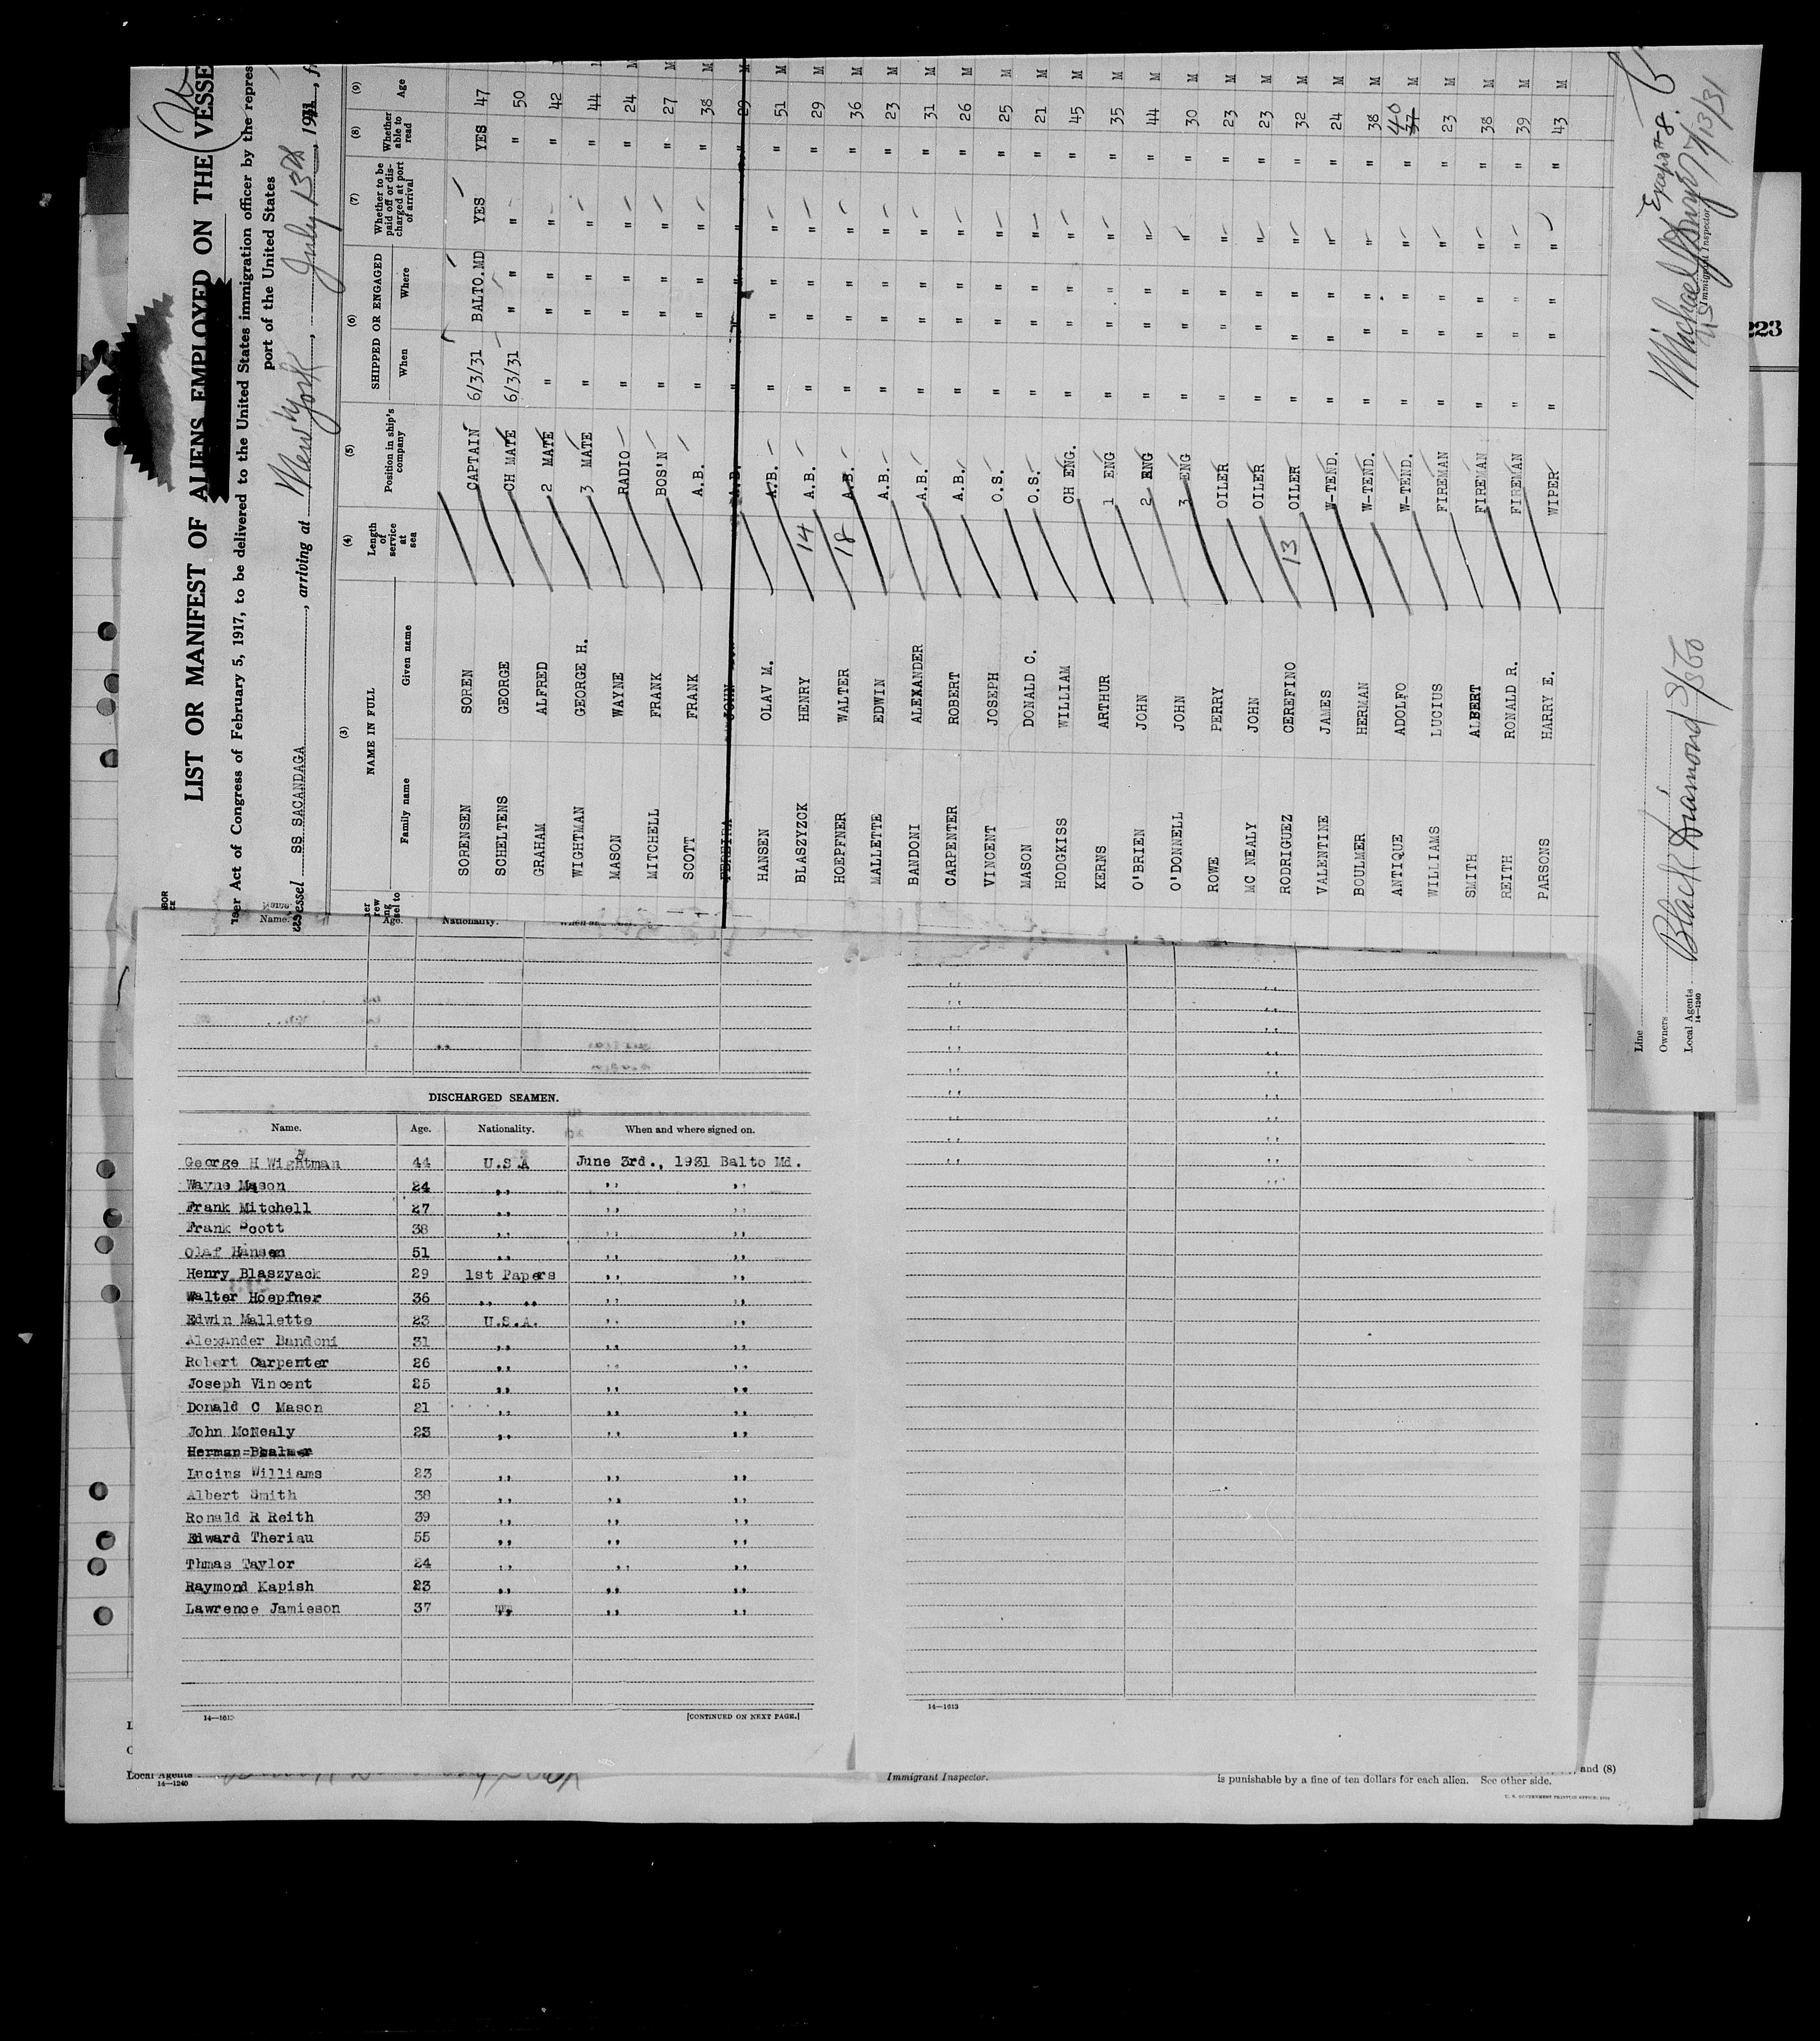 LIST OR MANIFEST OF ALIENS EMPLOYED ON THE VESSE
Act of Congress of February 5, 1917, to be delivered to the United States immigration officer by the repres
port of the United States
Vessel SS SACANDAGA, arriving at New York, July 13th, 1931, fr
(3) (4) (5) (6) (7) (8) (9)
NAME IN FULL Length of service at sea Position in ship's company SHIPPED OR ENGAGED Whether to be paid off or discharged at port of arrival Whether able to read Age
Family name Given name When Where
SORENSEN SOREN CAPTAIN 6/3/31 BALTO.MD YES YES 47
SCHELTENS GEORGE CH MATE 6/3/31 " " " " 50
GRAHAM ALFRED 2 MATE " " " " " 42
WIGHTMAN GEORGE H. 3 MATE " " " " " 44
MASON WAYNE RADIO " " " " " 24
MITCHELL FRANK BOS'N " " " " " 27 M
SCOTT FRANK A.B. " " " " " 38 M
FEREIRA JOHN A.B. " " " " " 29 M
HANSEN OLAV M. A.B. " " " " " 51 M
BLASZYZCK HENRY 14 A.B. " " " " " 29 M
HOEPFNER WALTER 18 A.B. " " " " " 36 M
MALLETTE EDWIN A.B. " " " " " 23 M
BANDONI ALEXANDER A.B. " " " " " 31 M
CARPENTER ROBERT A.B. " " " " " 26 M
VINCENT JOSEPH O.S. " " " " " 25 M
MASON DONALD C. O.S. " " " " " 21 M
HODGKISS WILLIAM CH ENG. " " " " " 45 M
KERNS ARTHUR 1 ENG " " " " " 35 M
O'BRIEN JOHN 2 ENG " " " " " 44 M
O'DONNELL JOHN 3 ENG " " " " " 30 M
ROWE PERRY OILER " " " " " 23 M
MC NEALY JOHN OILER " " " " " 23 M
RODRIGUEZ CEREFINO 13 OILER " " " " " 32 M
VALENTINE JAMES W-TEND. " " " " " 24 M
BOULMER HERMAN W-TEND. " " " " " 38 M
ANTIQUE ADOLFO W-TEND. " " " " " 37 40 M
WILLIAMS LUCIUS FIREMAN " " " " " 23 M
SMITH ALBERT FIREMAN " " " " " 38 M
REITH RONALD R. FIREMAN " " " " " 39 M
PARSONS HARRY E. WIPER " " " " " 43 M
Line
Owners
Local Agents Black Diamond
14—1240
Immigrant Inspector
7/13/31
223
Name. Age. Nationality.
DISCHARGED SEAMEN.
Name. Age. Nationality. When and where signed on.
George H Wightman 44 U.S.A June 3rd., 1931 Balto Md.
Wayne Mason 24 ,, ,, ,,
Frank Mitchell 27 ,, ,, ,,
Frank Scott 38 ,, ,, ,,
Olaf Hansen 51 ,, ,, ,,
Henry Blaszyack 29 1st Papers ,, ,,
Walter Hoepfner 36 ,, ,, ,, ,,
Edwin Mallette 23 U.S.A. ,, ,,
Alexander Bandoni 31 ,, ,, ,,
Robert Carpenter 26 ,, ,, ,,
Joseph Vincent 25 ,, ,, ,,
Donald C Mason 21 ,, ,, ,,
John McNealy 23 ,, ,, ,,
Herman
Lucius Williams 23 ,, ,, ,,
Albert Smith 38 ,, ,, ,,
Ronald R Reith 39 ,, ,, ,,
Edward Theriau 55 ,, ,, ,,
Thmas Taylor 24 ,, ,, ,,
Raymond Kapish 23 ,, ,, ,,
Lawrence Jamieson 37 ,, ,, ,,
[CONTINUED ON NEXT PAGE.]
14—1613
Local Agents
14—1240
Immigrant Inspector.
, and (8)
is punishable by a fine of ten dollars for each alien. See other side.
U. S. GOVERNMENT PRINTING OFFICE: